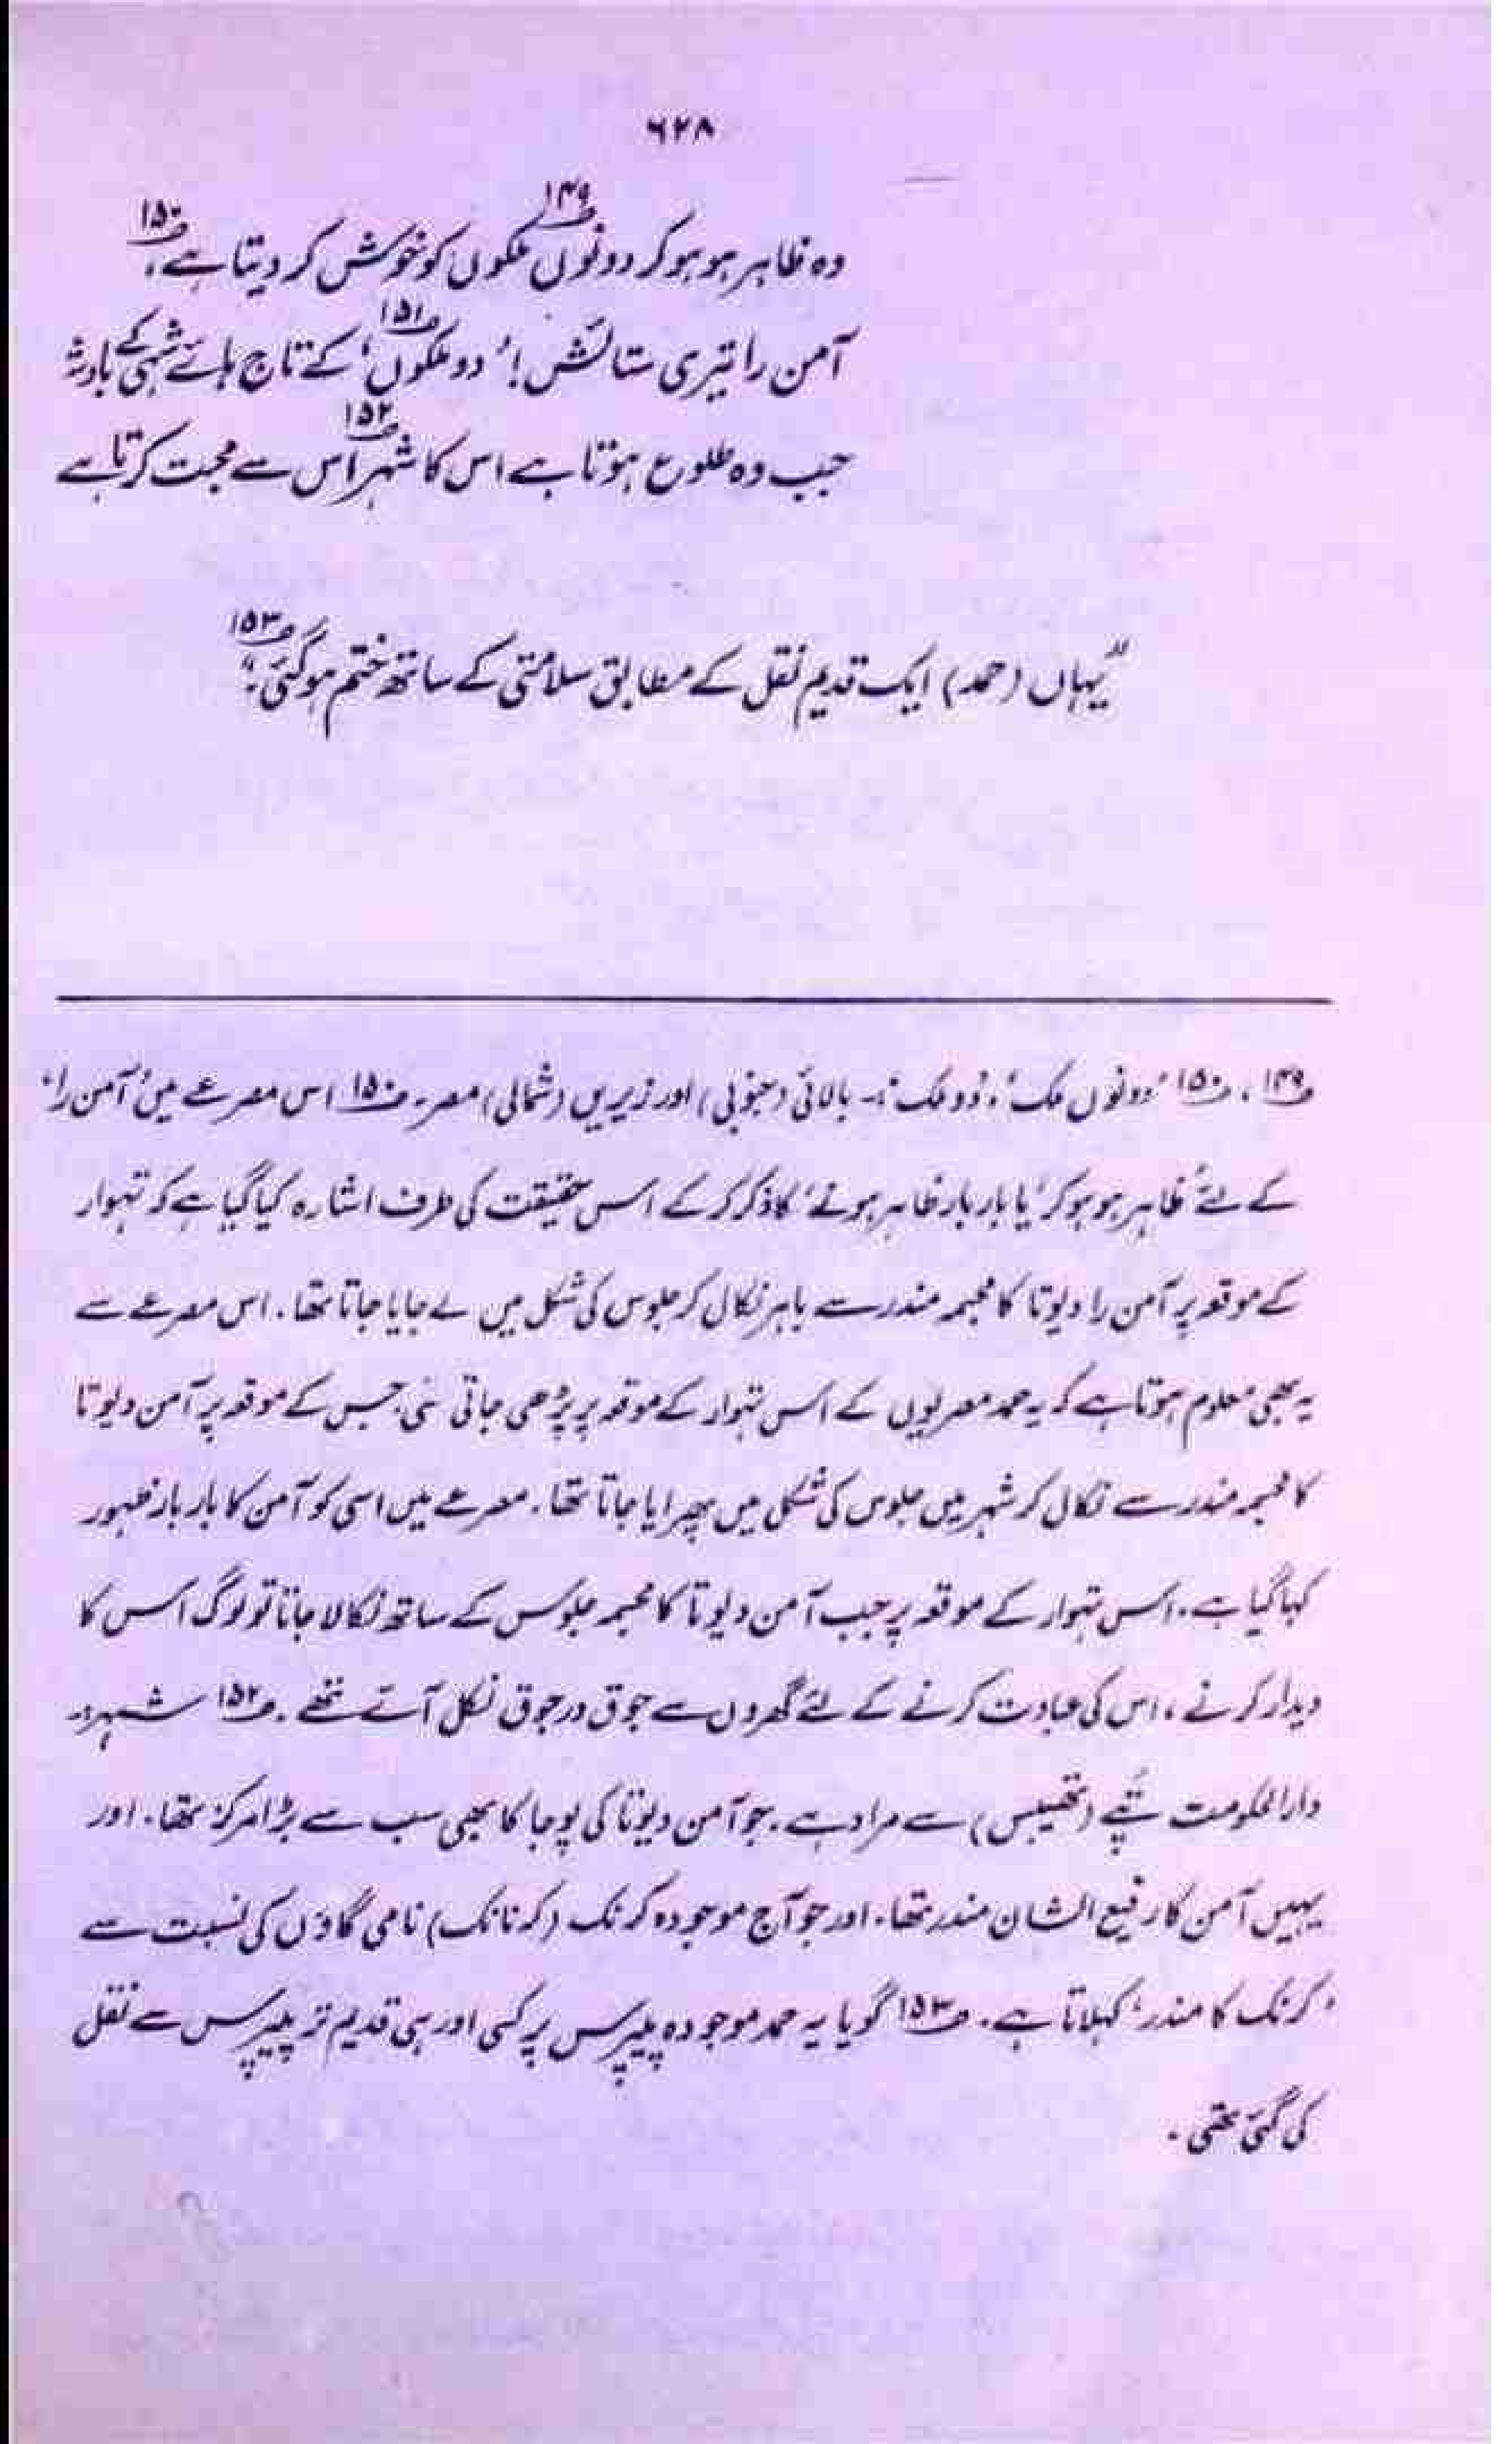 ۶۲۸
وہ ظاہر ہو ہو کر دونوں ؎۱۴۹ ملکوں کو خوش کر دیتا ہے، ؎۱۵۰
آمن را تیری ستائش! ’دو ملکوں‘ ؎۱۵۱ کے تاج ہائے شہی کے بادشہ
جب وہ طلوع ہوتا ہے اس کا شہر ؎۱۵۲ اس سے محبت کرتا ہے
”یہاں (حمد) ایک قدیم نقل کے مطابق سلامتی کے ساتھ ختم ہو گئی۔“ ؎۱۵۳
؎۱۴۹، ؎۱۵۰ ’دونوں ملک‘، ’دو ملک‘:۔ بالائی (جنوبی) اور زیریں (شمالی) مصر۔ ؎۱۵۰ اس مصرعے میں ’آمن را‘
کے لئے ’ظاہر ہو ہو کر‘ یا بار بار ’ظاہر ہونے‘ کا ذکر کر کے اس حقیقت کی طرف اشارہ کیا گیا ہے کہ تہوار
کے موقعہ پر آمن را دیوتا کا مجسمہ مندر سے باہر نکال کر جلوس کی شکل میں لے جایا جاتا تھا۔ اس مصرعے سے
یہ بھی معلوم ہوتا ہے کہ یہ حمد مصریوں کے اس تہوار کے موقعہ پر پڑھی جاتی تھی جس کے موقعہ پر آمن دیوتا
کا مجسمہ مندر سے نکال کر شہر میں جلوس کی شکل میں پھرایا جاتا تھا۔ مصرعے میں اسی کو آمن کا بار بار ظہور
کہا گیا ہے۔ اس تہوار کے موقعہ پر جب آمن دیوتا کا مجسمہ جلوس کے ساتھ نکالا جاتا تو لوگ اس کا
دیدار کرنے، اس کی عبادت کرنے کے لئے گھروں سے جوق در جوق نکل آتے تھے۔ ؎۱۵۲ شہر:۔
دارالحکومت تپے (تھیبس) سے مراد ہے۔ جو آمن دیوتا کی پوجا کا بھی سب سے بڑا مرکز تھا۔ اور
یہیں آمن کا رفیع الشان مندر تھا۔ اور جو آج موجودہ کرنک (کرنانک) نامی گاؤں کی نسبت سے
’کرنک کا مندر‘ کہلاتا ہے۔ ؎۱۵۳ گویا یہ حمد موجودہ پیپرس پر کسی اور ہی قدیم تر پیپرس سے نقل
کی گئی تھی۔